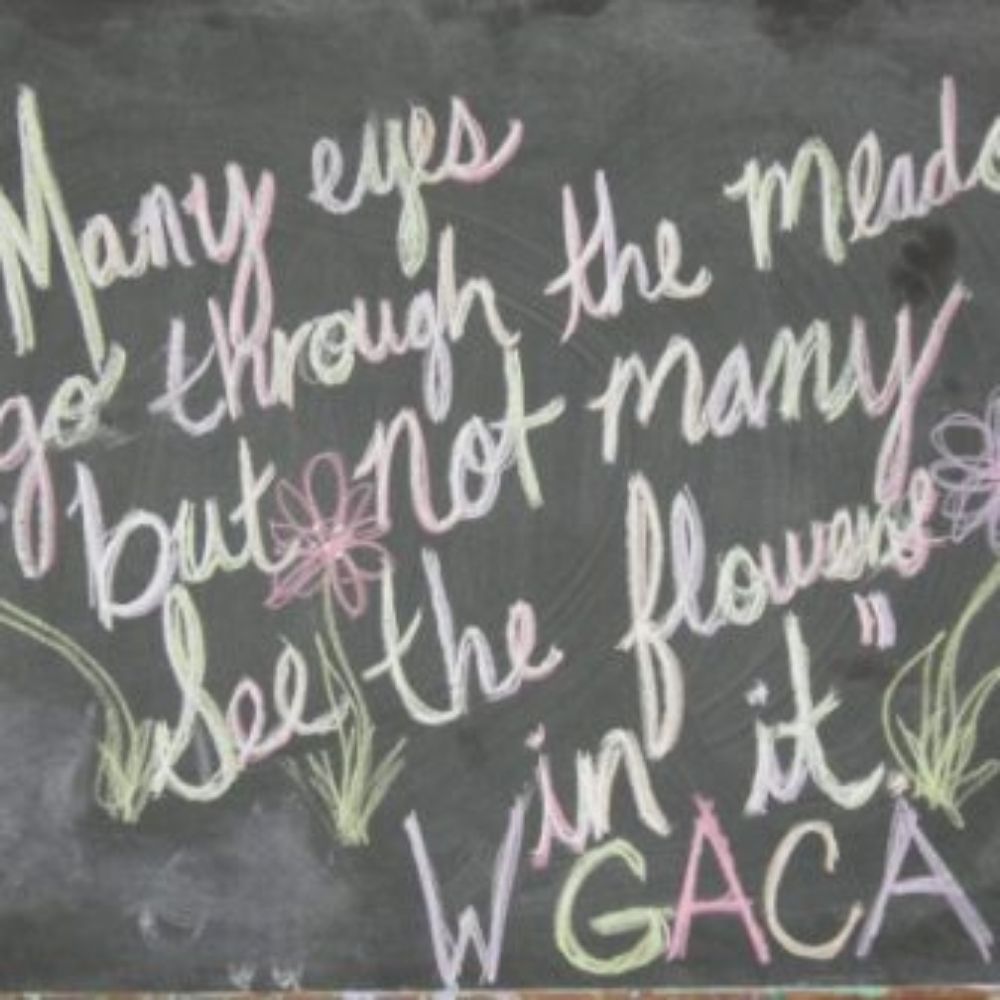 Many eyes
go through the meado
but not many
See the flowers
in it"
WGACA